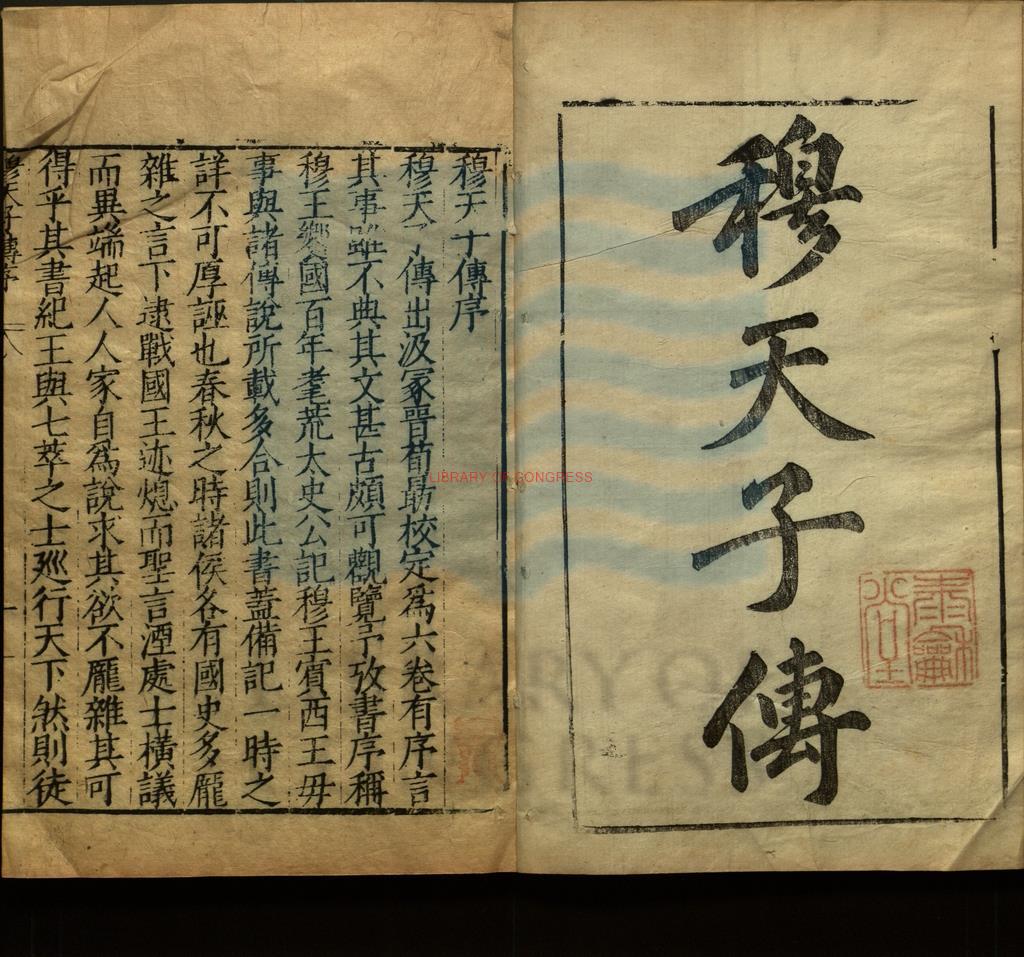 穆天子傳
穆天子傳序
穆天子傳出汲冢晉荀勗校定爲六卷有序言
其事雖不典其文甚古頗可觀覽予攷書序稱
穆王饗國百年耄荒太史公記穆王賓西王毋
事與諸傳說所載多合則此書蓋備記一時之
詳不可厚誣也春秋之時諸侯各有國史多龎
雜之言下逮戰國王迹熄而聖言湮處士橫議
而異端起人人家自爲說求其欲不龎雜其可
得乎其書紀王與七萃之士廵行天下然則徒
穆天子傳序
LIBRARY OF CONGRESS